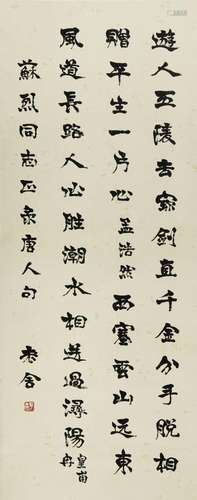 遊人五陵去寶劍直千金分手脫相
贈平生一片心孟浩然西塞雲山远東
風道長路人心胜潮水相送過潯陽皇甫冉
蘇烈同志正录唐人句